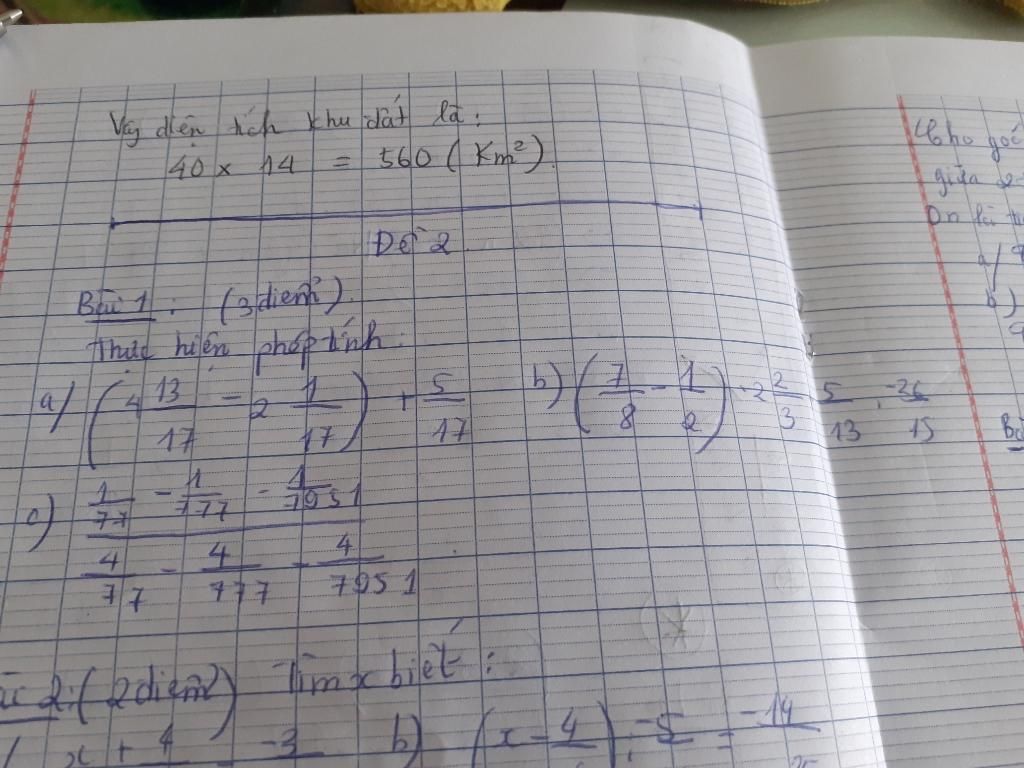 Vậy diện tích khu đất là:
40 x 14 = 560 (Km²).
Đề 2
Bài 1: (3 điểm).
Thực hiện phép tính:
a/ (4 13/17 - 2 1/17) + 5/17 b) (7/8 - 1/2) . 2 2/3 5/13 . -26/15
c) 1/77 - 1/777 - 1/7951
4/77 - 4/777 - 4/7951
2: (2 điểm) Tìm x biết:
x + 4 -3 b) (x - 4 ) : -5 = -14
Cho góc
giữa 2
a/
b)